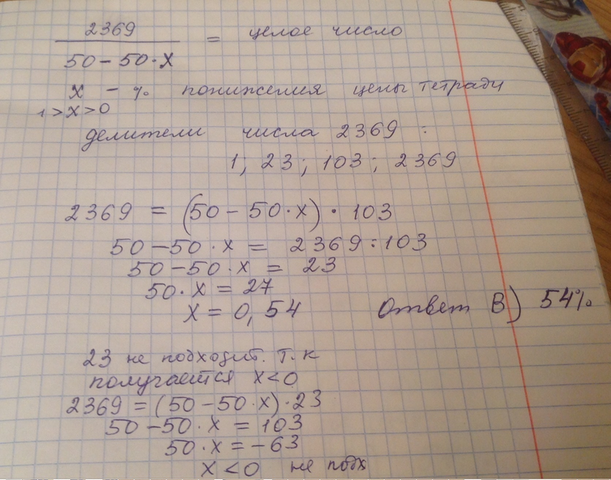 2369
50 - 50·x
= целое число
x - % понижения цены тетради
1 > x > 0
делители числа 2369 :
1; 23; 103; 2369
2369 = (50 - 50·x) · 103
50 - 50·x = 2369 : 103
50 - 50·x = 23
50·x = 27
x = 0,54
Ответ B) 54%
23 не подходит. т.к
получается x<0
2369 = (50 - 50·x)·23
50 - 50·x = 103
50·x = -63
x < 0 не подх